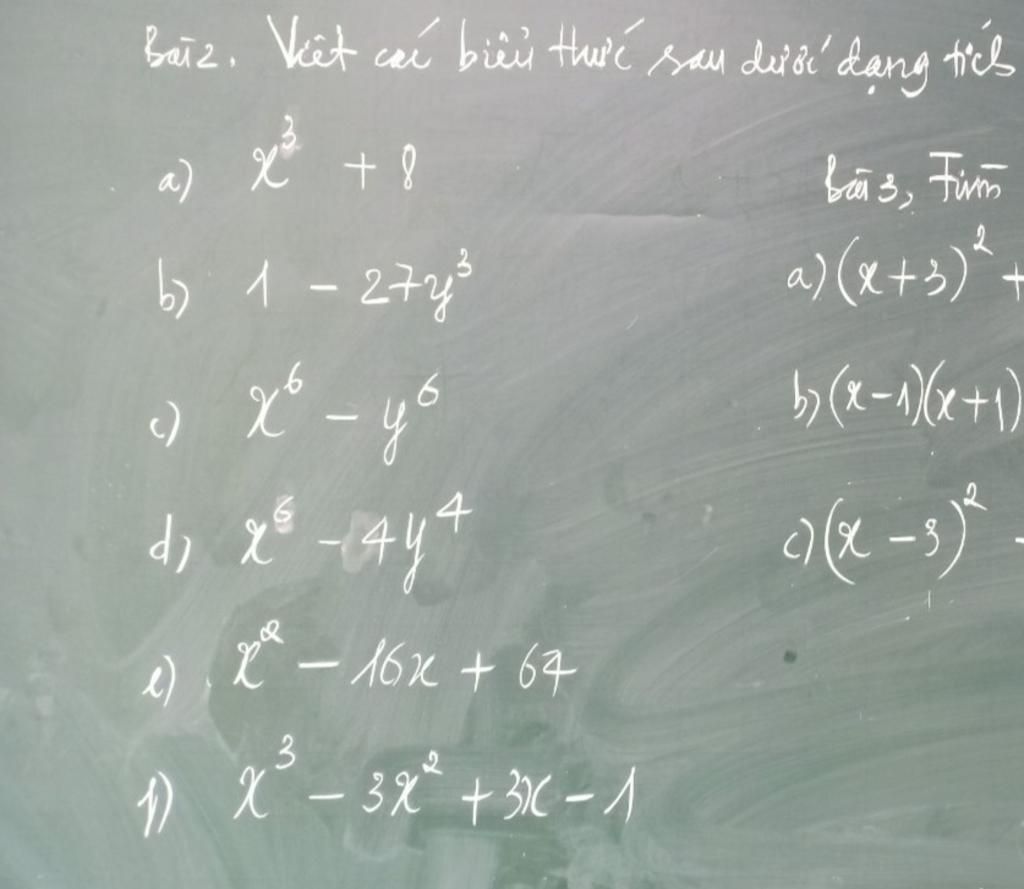 Bài 2. Viết các biểu thức sau dưới dạng tích
a) x³ + 8
b) 1 - 27y³
c) x⁶ - y⁶
d) x⁶ - 4y⁴
e) x² - 16x + 64
f) x³ - 3x² + 3x - 1
Bài 3, Tìm
a) (x+3)² +
b) (x-1)(x+1)
c) (x-3)² -